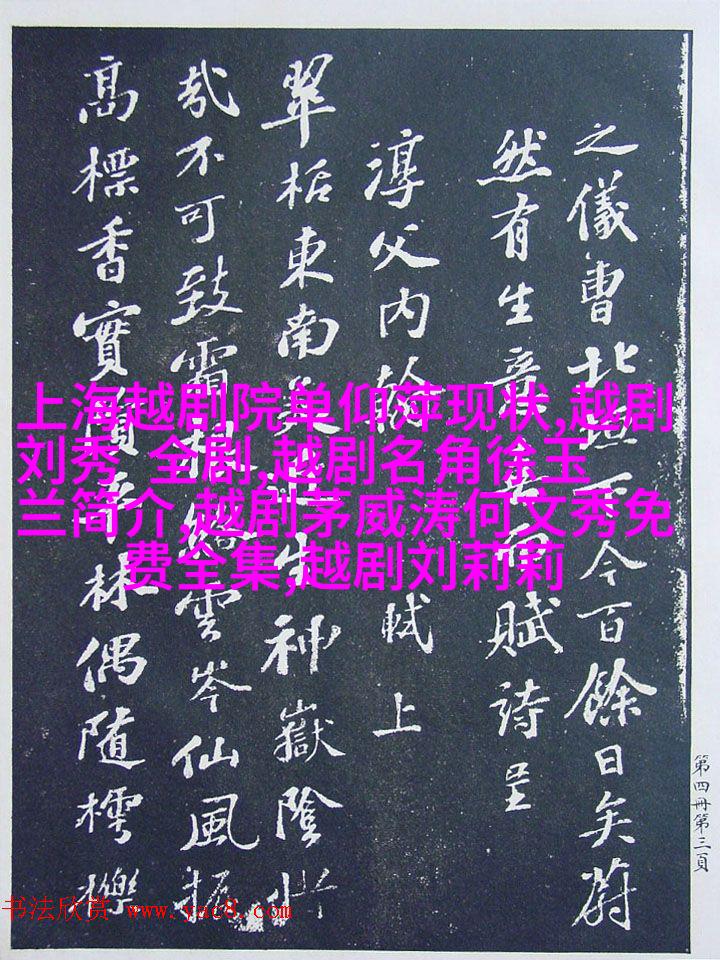 之儀曹北垣下今百餘日矣蔚
然有生意喜而賦詩呈
淳父内翰 軾上
翠栢東南美近生神嶽陰惜
哉不可致霜根絡雲岑仙風振
高標香實隕平林偶隨樗櫟
上海越剧院单仰萍现状,越剧
刘秀 全剧,越剧名角徐玉
兰简介,越剧茅威涛何文秀免
费全集,越剧刘莉莉
第四冊第三頁
书法欣赏 www.yac8.com